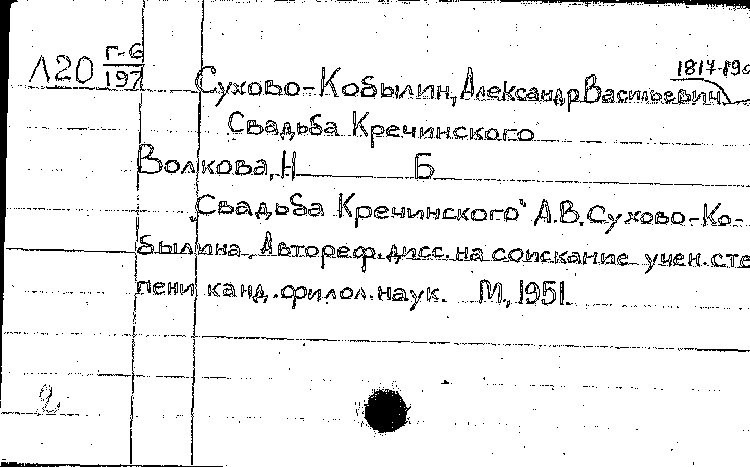 Л20 Г-6/197
Сухово-Кобылин, Александр Васильевич
Свадьба Кречинского
Волкова, Н Б
„Свадьба Кречинского" А.В. Сухово-Ко-
былина. Автореф. дисс. на соискание учен. сте
пени канд. филол. наук. М., 1951.
2